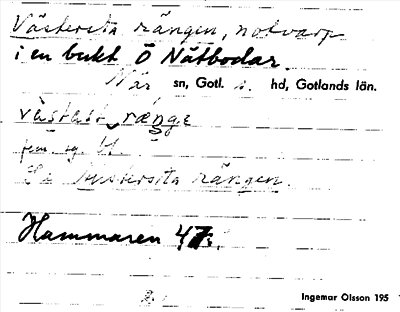 Västersta rängen, notvarp
i en bukt Ö Nätbodar.
När sn, Gotl. s. hd, Gotlands län.
västast ränge
Se Austersta rängen.
Hammaren 47
Ingemar Olsson 195